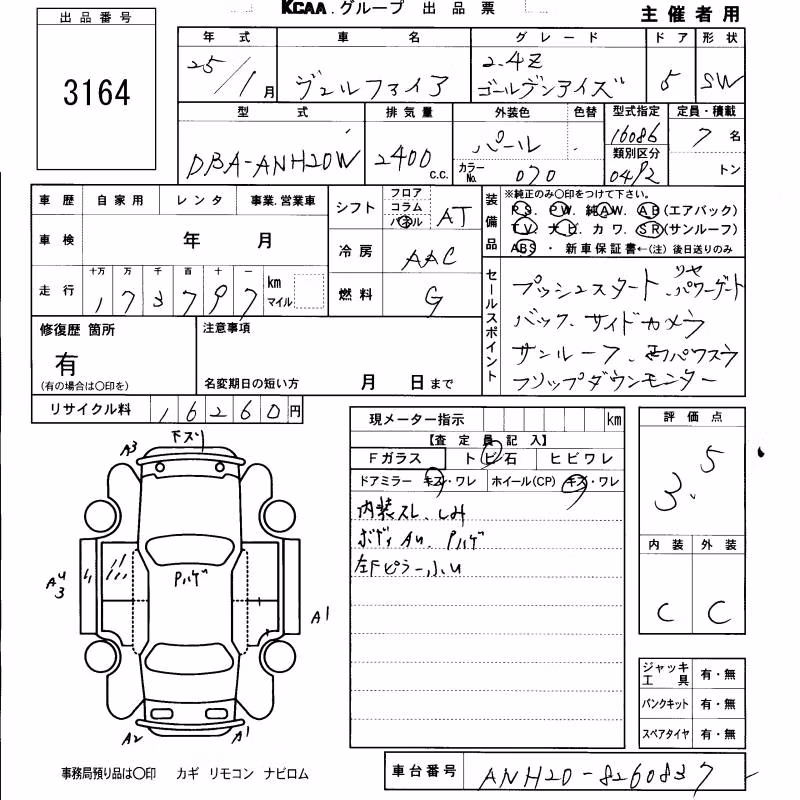 KCAA.グループ 出品票
主催者用
出品番号
3164
年式 車名 グレード ドア 形状
25/1月 ヴェルファイア 2.4Z ゴールデンアイズ 5 SW
型式 排気量 外装色 色替 型式指定 定員・積載
DBA-ANH20W 2400 c.c. パール 16086 7名
カラーNo. 070 類別区分 0492 トン
車歴 自家用 レンタ 事業.営業車
シフト フロア コラム パネル AT
装備品
※純正のみ○印をつけて下さい。
PS. PW. 純AW. AB(エアバック)
TV. ナビ. カワ. SR(サンルーフ)
ABS・新車保証書←(注)後日送りのみ
車検 年 月
冷房 AAC
走行 十万 万 千 百 十 一
173797 km マイル
燃料 G
セールスポイント
プッシュスタート リヤパワーゲート
バック、サイドカメラ
サンルーフ、両パワスラ
フリップダウンモニター
修復歴 箇所
有
(有の場合は○印を)
注意事項
名変期日の短い方 月 日まで
リサイクル料 16260円
現メーター指示 km
【査定員記入】
Fガラス トビ石 ヒビワレ
ドアミラー キズ・ワレ ホイール(CP) キズ・ワレ
内装スレ、しみ
ボディAU、Pハゲ
左Fピラー小U
評価点
3.5
内装 外装
C C
A3 下ズリ
A4 3
Pハゲ
A1
A2
A1
ジャッキ工具 有・無
パンクキット 有・無
スペアタイヤ 有・無
事務局預り品は○印 カギ リモコン ナビロム
車台番号 ANH20-8260837